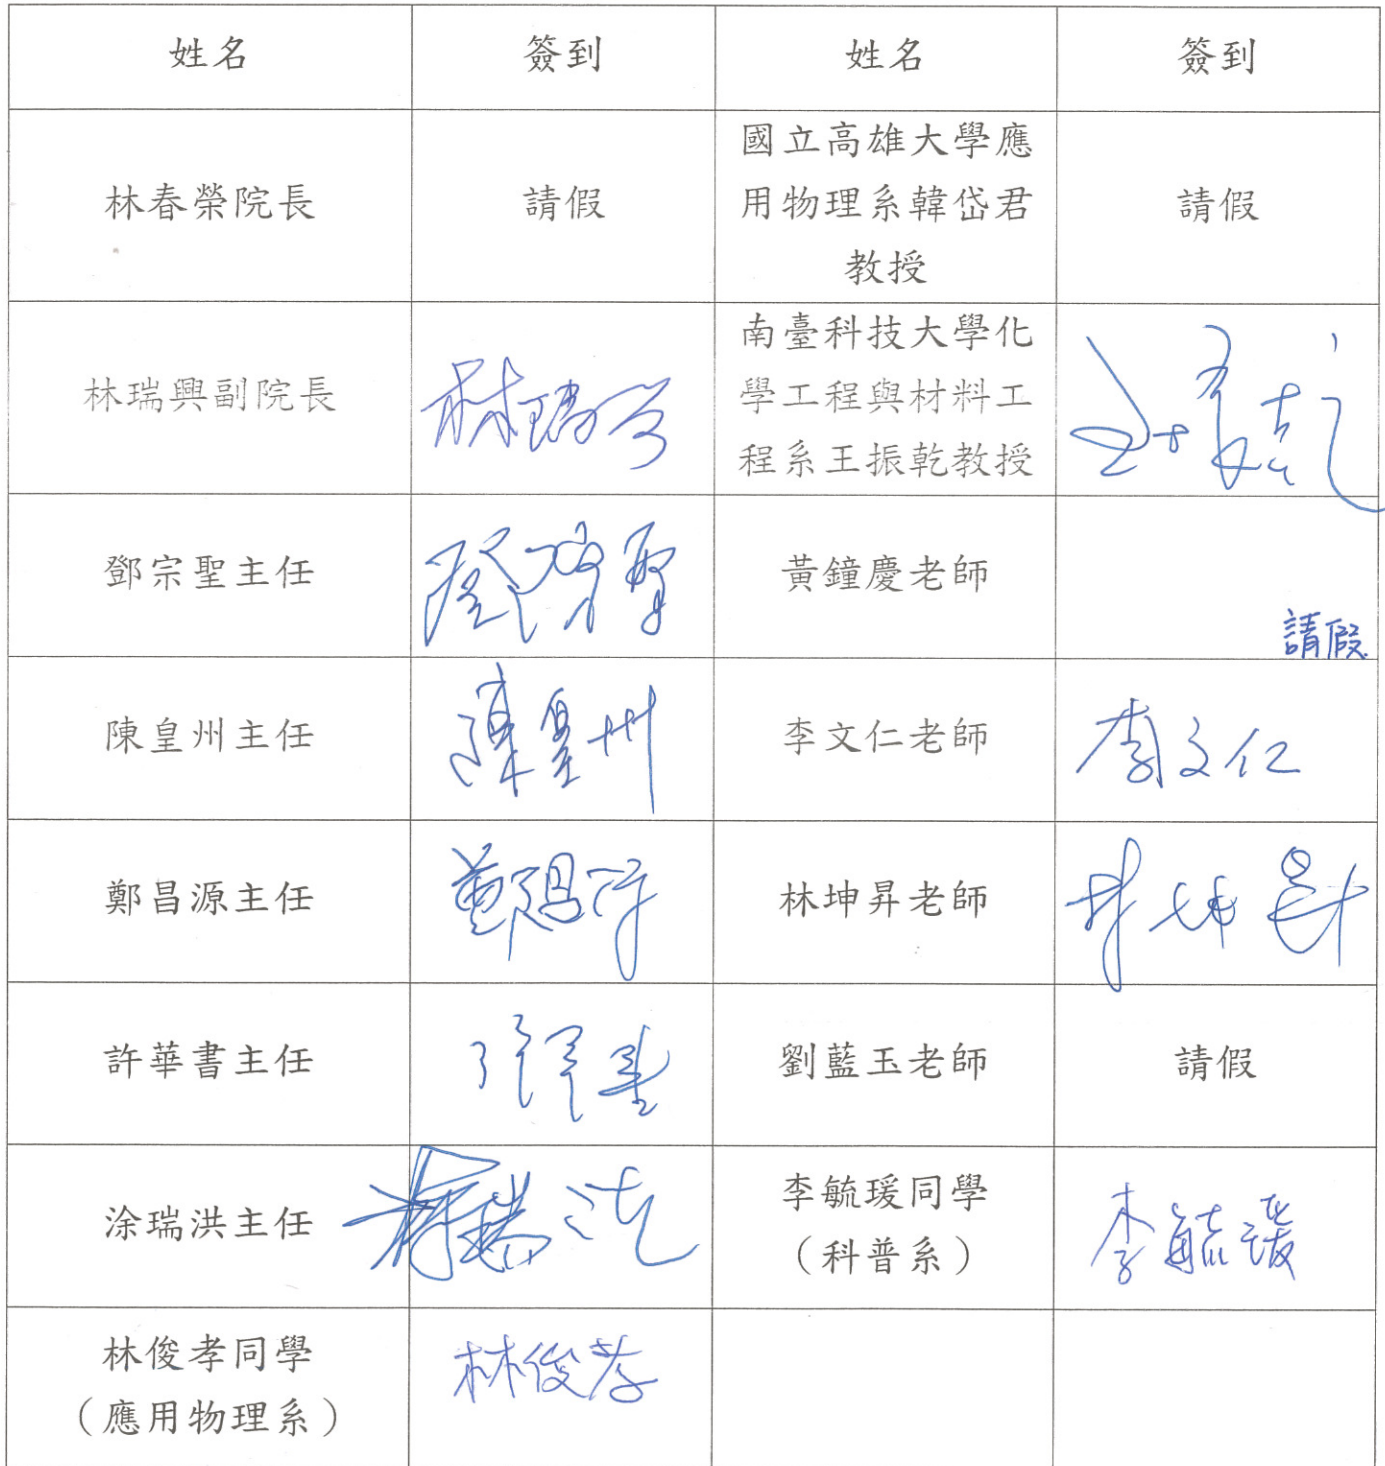 姓名 簽到 姓名 簽到
林春榮院長 請假 國立高雄大學應
用物理系韓岱君
教授 請假
林瑞興副院長 林瑞興 南臺科技大學化
學工程與材料工
程系王振乾教授 王振乾
鄧宗聖主任 鄧宗聖 黃鐘慶老師 請假
陳皇州主任 陳皇州 李文仁老師 李文仁
鄭昌源主任 鄭昌源 林坤昇老師 林坤昇
許華書主任 許華書 劉藍玉老師 請假
涂瑞洪主任 涂瑞洪 李毓瑗同學
（科普系） 李毓瑗
林俊孝同學
（應用物理系） 林俊孝